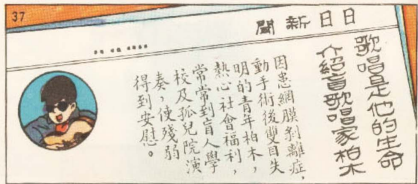 37
日日新聞
歌唱是他的生命,
介紹盲歌唱家柏木
因患網膜剝離症,
動手術後雙目失
明的青年柏木,
熱心社會福利,
常常到盲人學
校及孤兒院演
奏,使殘弱
得到安慰。